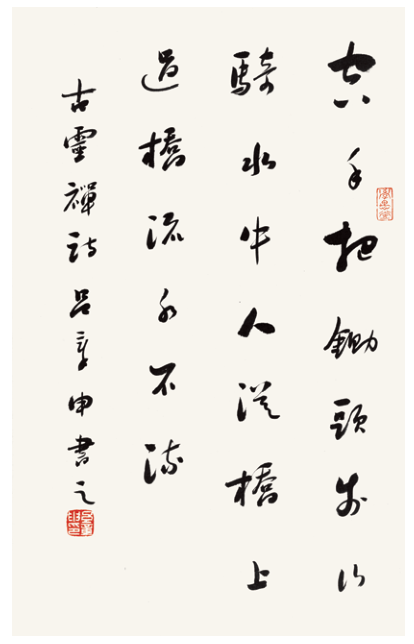 空手把鋤頭步行
騎水牛人從橋上
過橋流水不流
古靈禪詩呂章申書之